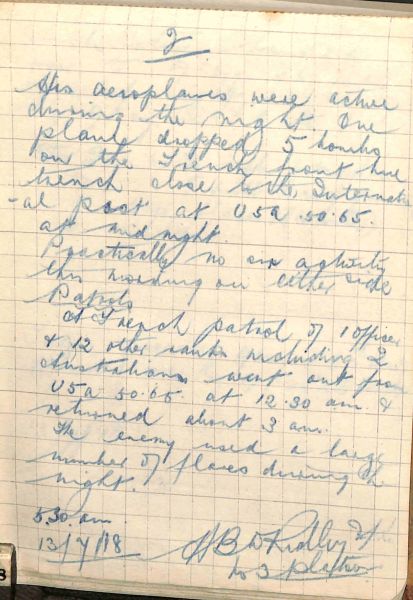 2
His aeroplanes were active
during the night. One
plane dropped 5 bombs
on the French front line
trench close to the Internation
-al post at U5a.50.65.
at midnight.
Practically no air activity
this morning on either side
Patrols
A French patrol of 1 officer
& 12 other ranks including 2
Australians went out from
U5a 50.65 at 12.30 am. &
returned about 3 am.
The enemy used a large
number of flares during the
night.
5.30. am.
13/7/18 Ridley
No 3 platoon